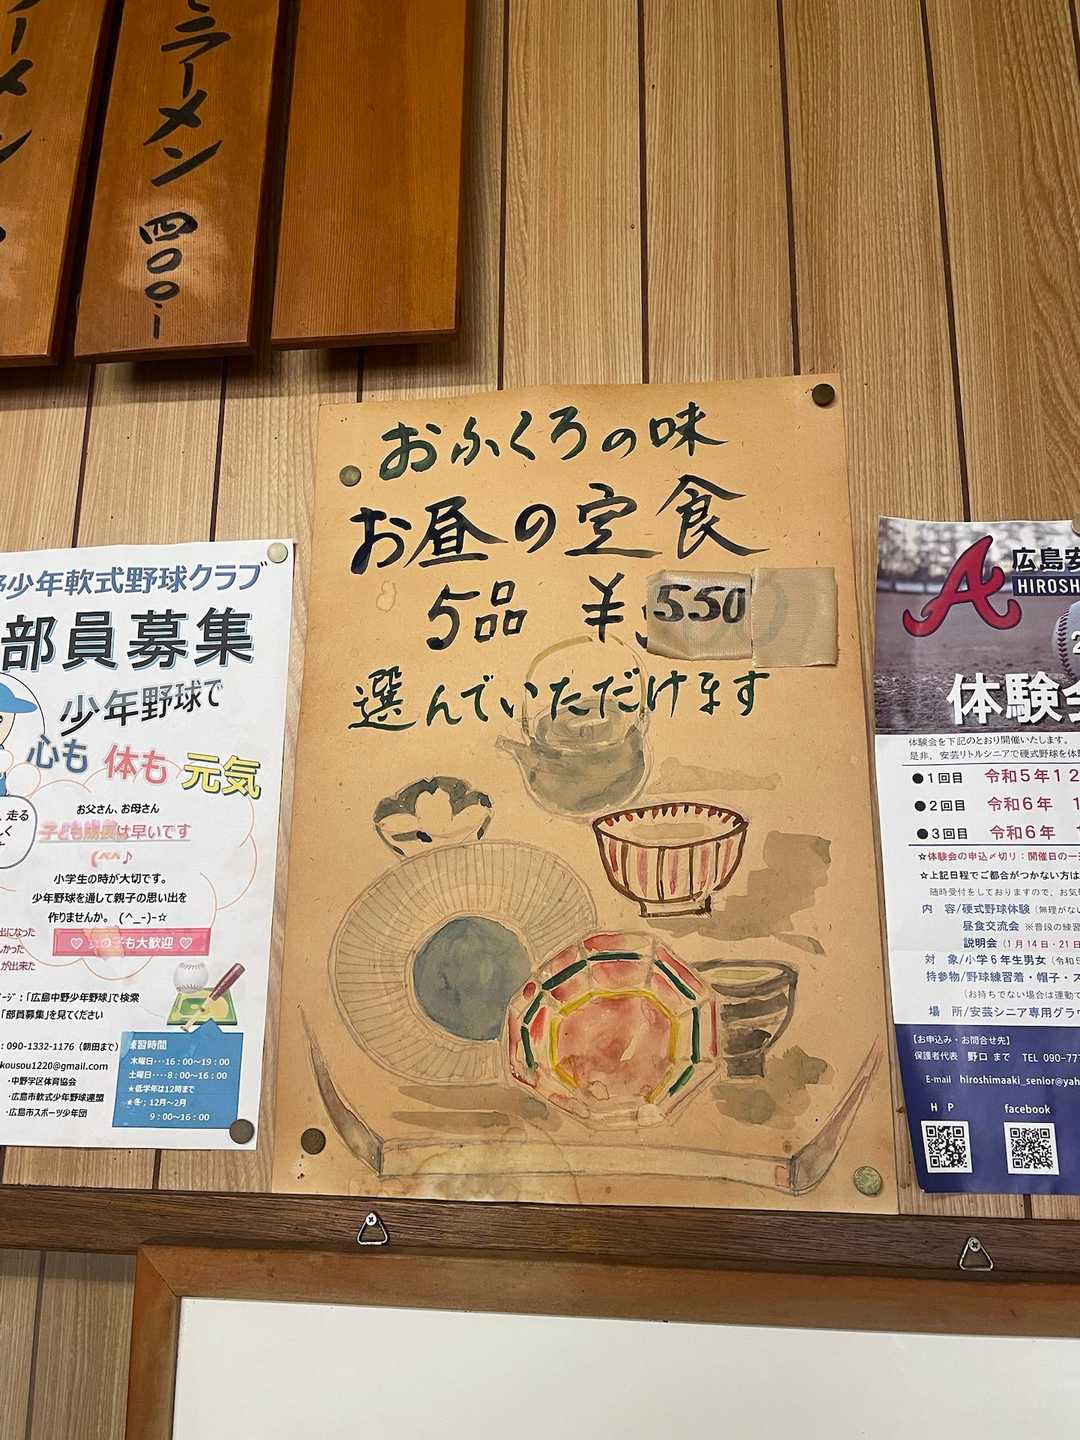 ラーメン
ミニラーメン
四〇〇-
おふくろの味
お昼の定食
5品 ¥550
選んでいただけます
少年軟式野球クラブ
部員募集
少年野球で
心も 体も 元気
お父さん、お母さん
子ども成長は早いです
(^^♪
小学生の時が大切です。
少年野球を通して親子の思い出を
作りませんか。 (^_-)-☆
♡ 女の子も大歓迎 ♡
走る
出になった
しかった
が出来た
:「広島中野少年野球」で検索
「部員募集」を見てください
:090-1332-1176 (朝田まで)
kousou1220@gmail.com
・中野学区体育協会
・広島市軟式少年野球連盟
・広島市スポーツ少年団
練習時間
木曜日・・・16:00~19:00
土曜日・・・・8:00~16:00
★低学年は12時まで
★冬;12月~2月
9:00~16:00
A
広島安
HIROSH
体験会
体験会を下記のとおり開催いたします。
是非、安芸リトルシニアで硬式野球を体験
●1回目 令和5年12
●2回目 令和6年 1
●3回目 令和6年 1
☆体験会の申込〆切り:開催日の一
☆上記日程でご都合がつかない方は
随時受付をしておりますので、お気
内 容/硬式野球体験 (無理がない
昼食交流会 ※普段の練習
説明会 (1月14日・21日
対 象/小学6年生男女 (令和5
持参物/野球練習着・帽子・ス
(お持ちでない場合は運動で
場 所/安芸シニア専用グラウ
【お申込み・お問合せ先】
保護者代表 野口 まで TEL 090-77
E-mail hiroshimaaki_senior@yah
H P facebook